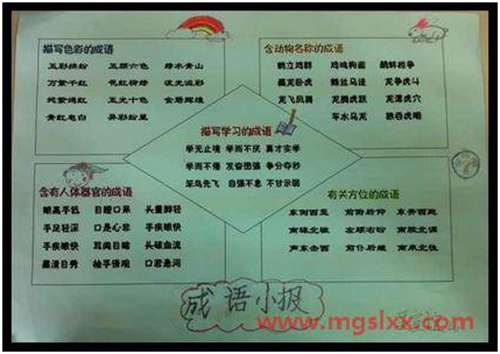 描写色彩的成语
五彩缤纷 五颜六色 绿水青山
万紫千红 花红柳绿 流光溢彩
姹紫嫣红 五光十色 金碧辉煌
青红皂白 异彩纷呈
含动物名称的成语
鹤立鸡群 鸡鸣狗盗 鹬蚌相争
藏龙卧虎 蛛丝马迹 龙争虎斗
龙飞凤舞 龙腾虎跃 龙潭虎穴
车水马龙
描写学习的成语
学无止境 学而不厌 真才实学
学而不倦 发奋图强 争分夺秒
笨鸟先飞 自强不息 不甘示弱
含有人体器官的成语
眼高手低 目瞪口呆 头重脚轻
手足轻深 口是心非 手疾眼快
手疾眼快 耳闻目睹 头破血流
眉清目秀 袖手旁观 口若悬河
有关方位的成语
东倒西歪 前俯后仰 东奔西跑
南辕北辙 左顾右盼 南腔北调
声东击西 前仆后继 南来北往
成语小报
www.mgslxx.com